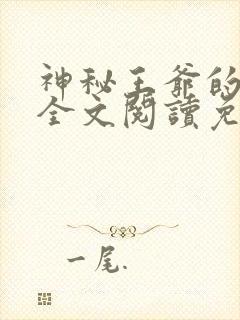 神秘王爺的
全文閱讀免
一尾.